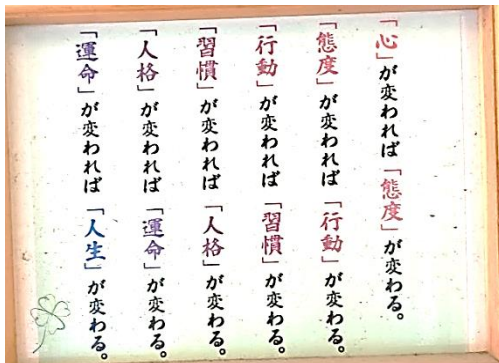 「心」が変われば「態度」が変わる。
「態度」が変われば「行動」が変わる。
「行動」が変われば「習慣」が変わる。
「習慣」が変われば「人格」が変わる。
「人格」が変われば「運命」が変わる。
「運命」が変われば「人生」が変わる。